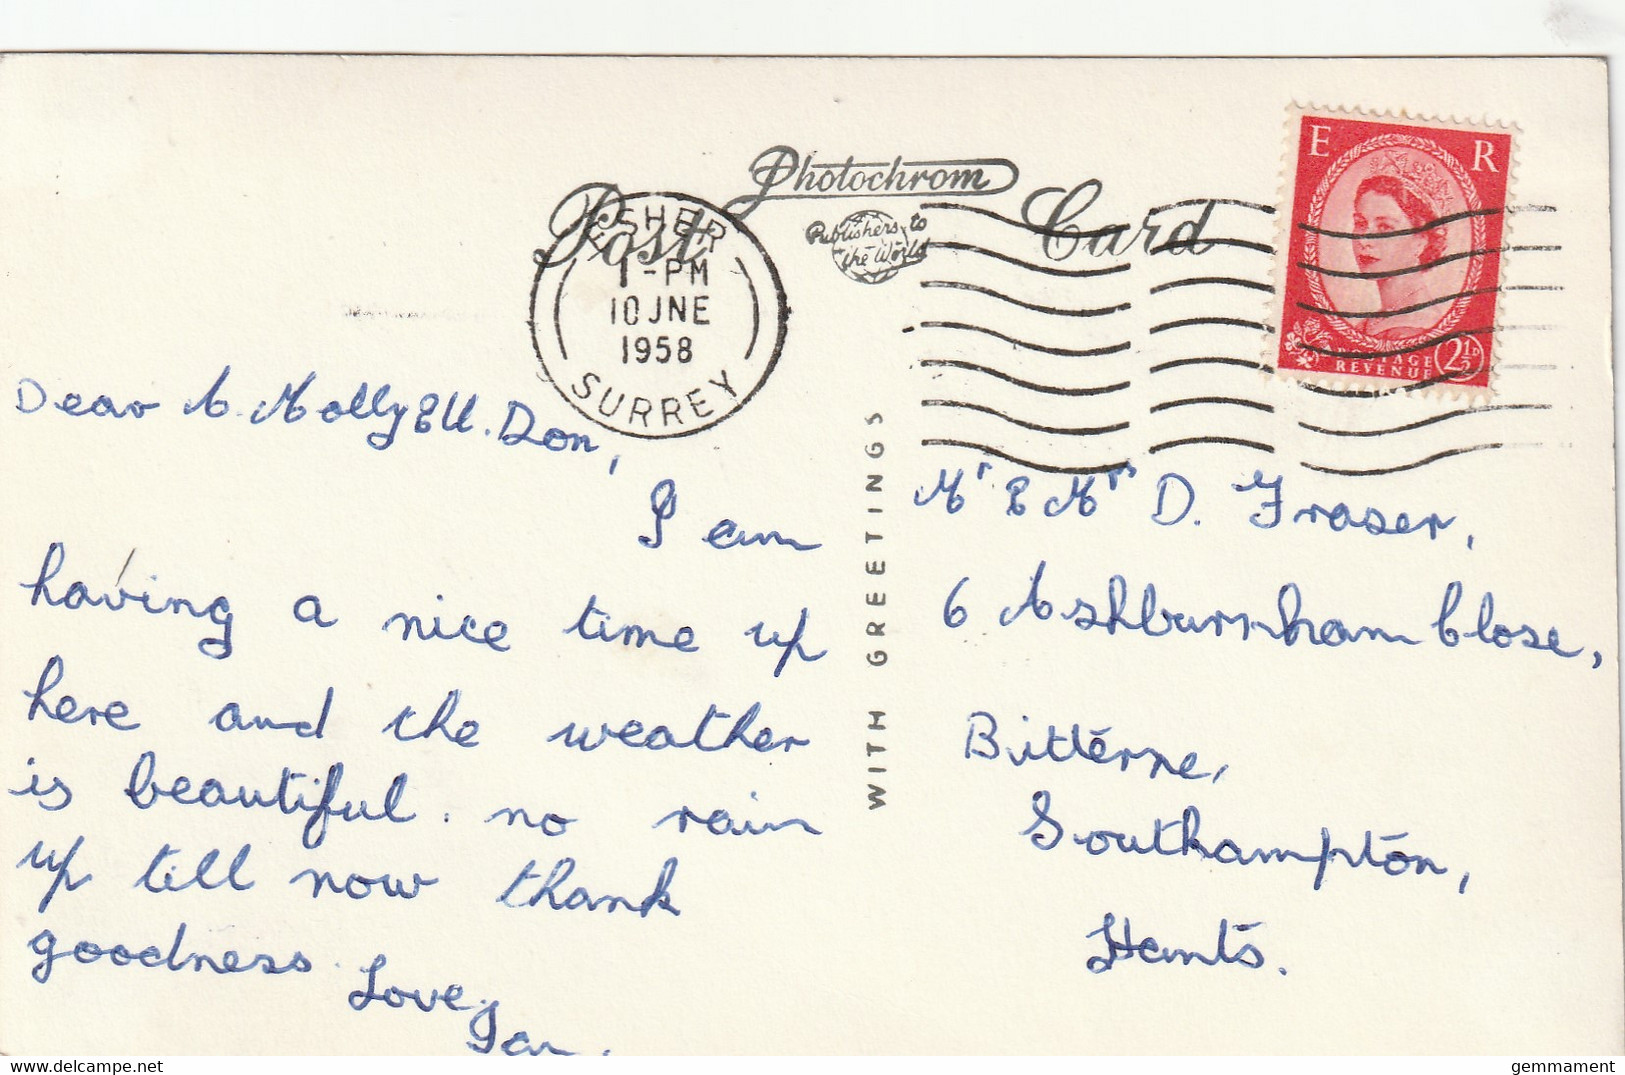 Photochrom
Post Card
Publishers to
the World
ESHER
1 - PM
10 JNE
1958
SURREY
E R
POSTAGE
REVENUE
2½D
WITH GREETINGS
Dear A. Molly & U. Don,
I am
having a nice time up
here and the weather
is beautiful. no rain
up till now thank
goodness.
Love,
Ian.
Mr & Mrs D. Fraser,
6 Ashburnham Close,
Bitterne,
Southampton,
Hants.
gemmament